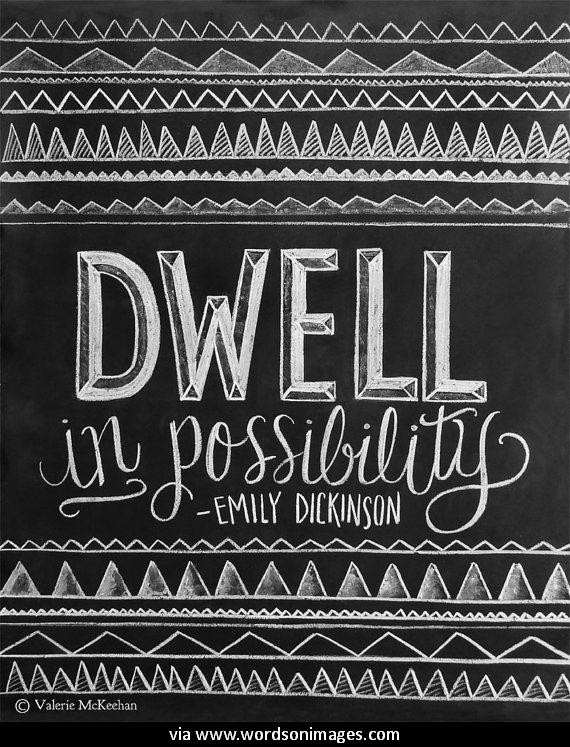 DWELL
in possibility
-EMILY DICKINSON
© Valerie McKeehan
via www.wordsonimages.com